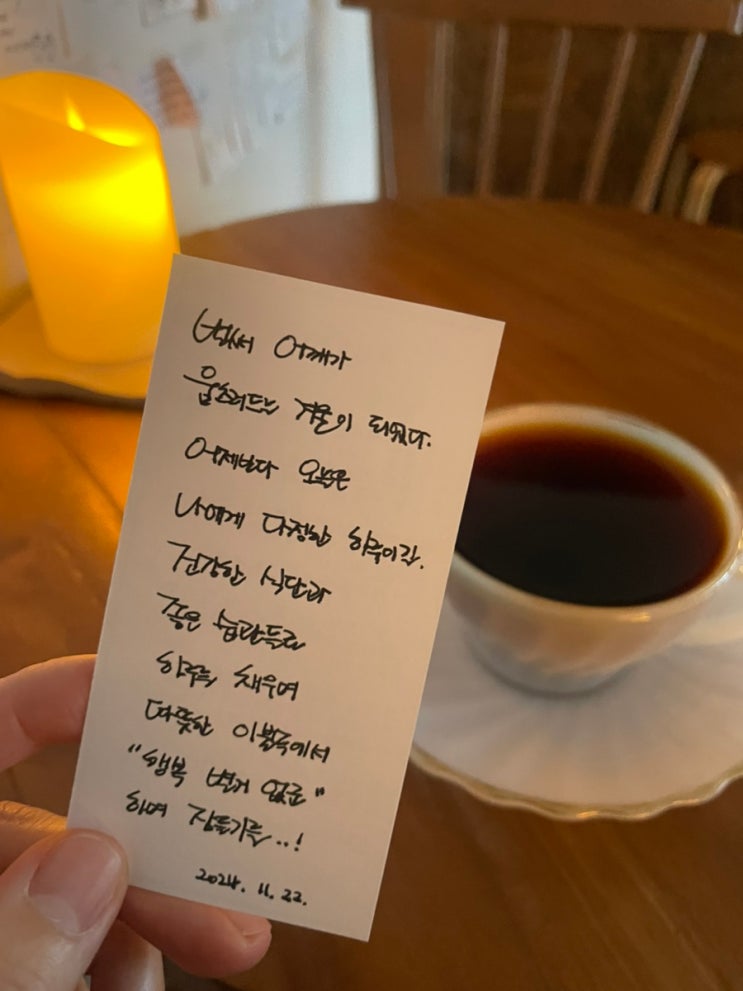 벌써 어깨가
움츠러드는 겨울이 되었다.
어제보다 오늘은
나에게 다정한 하루이길.
건강한 식단과
좋은 습관들로
하루를 채우며
따뜻한 이불속에서
“행복 별거 없군”
하며 잠들기를..!
2024. 11. 22.